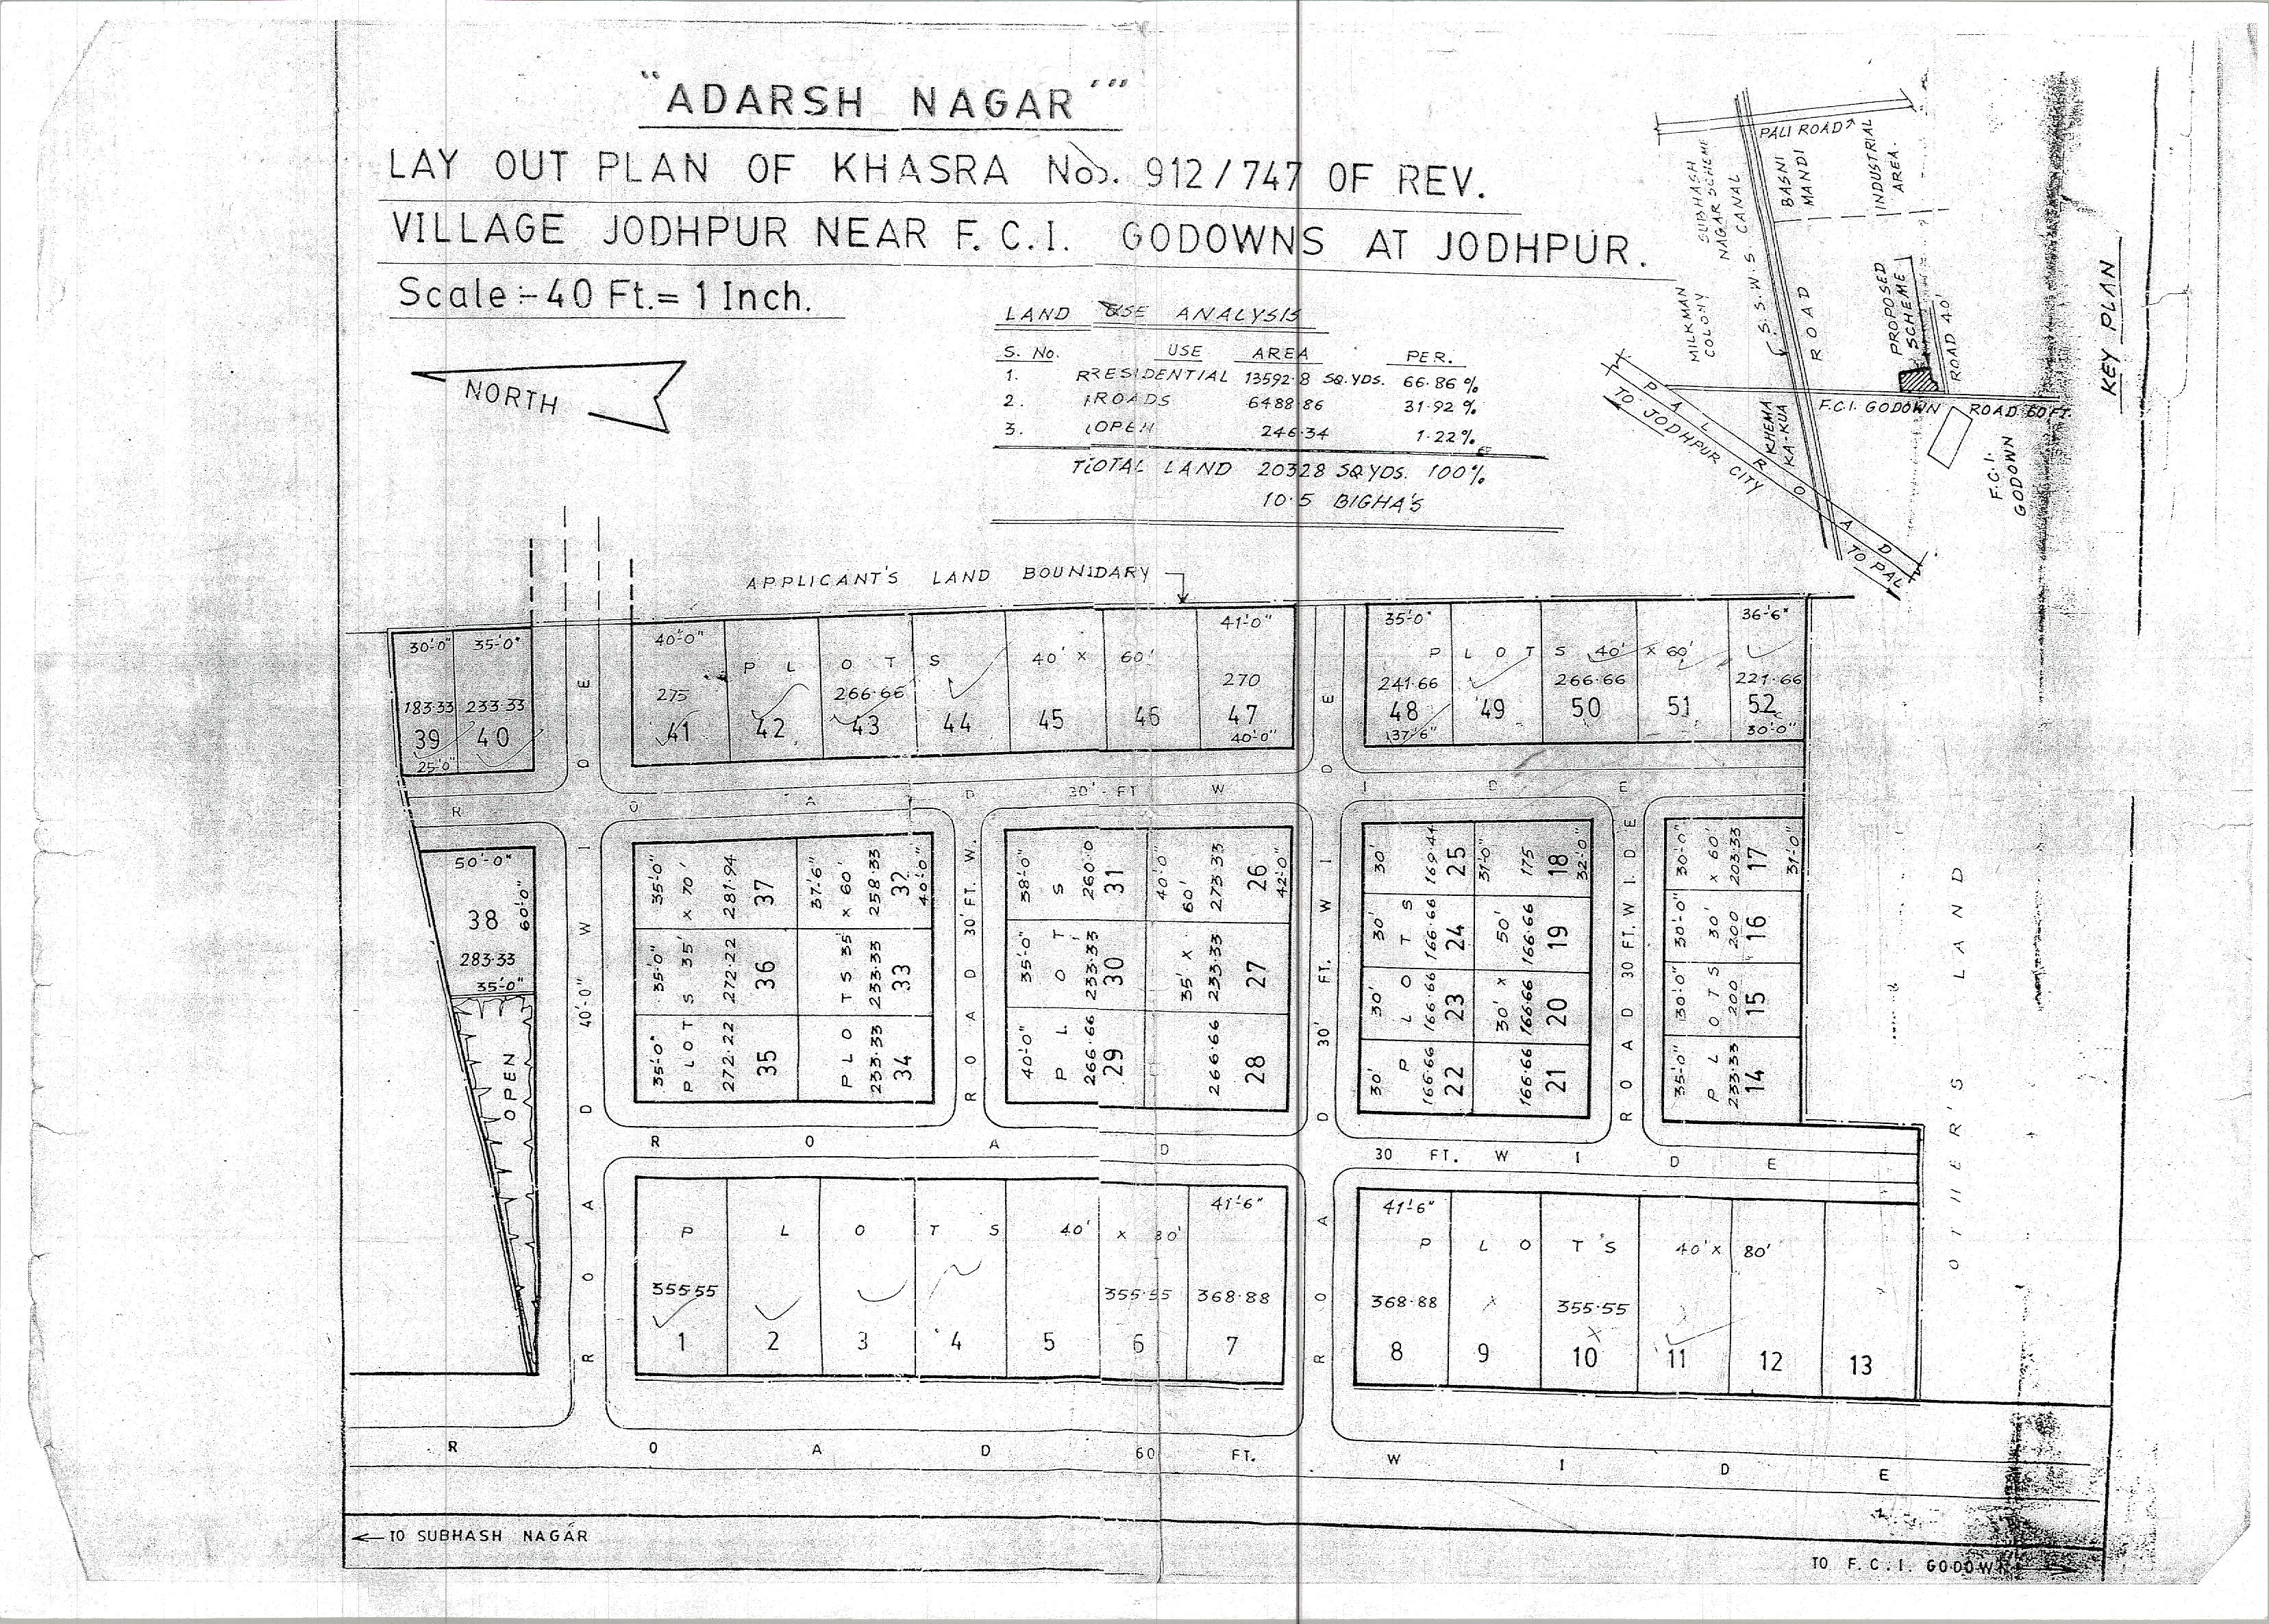 "ADARSH NAGAR"
LAY OUT PLAN OF KHASRA No. 912/747 OF REV.
VILLAGE JODHPUR NEAR F.C.I. GODOWNS AT JODHPUR.
Scale :- 40 Ft. = 1 Inch.
NORTH
LAND USE ANALYSIS
S. No. USE AREA PER.
1. RESIDENTIAL 13592.8 SQ.YDS. 66.86 %
2. ROADS 6488.86 31.92 %
3. OPEN 246.34 1.22 %
TOTAL LAND 20328 SQ.YDS. 100%
10.5 BIGHA'S
PALI ROAD
SUBHASH
NAGAR SCHEME
S.S.W.S CANAL
BASNI
MANDI
INDUSTRIAL
AREA.
MILKMAN
COLONY
ROAD
PROPOSED
SCHEME
ROAD 40'
F.C.I. GODOWN ROAD 60 FT.
KHEMA
KA-KUA
PAL ROAD
TO JODHPUR CITY
TO PAL
F.C.I.
GODOWN
KEY PLAN
APPLICANT'S LAND BOUNDARY
30'-0" 35'-0"
183.33 233.33
39 40
25'-0"
40'-0" 41'-0"
PLOTS 40' X 60'
275 266.66 270
41 42 43 44 45 46 47
40'-0"
35'-0" 36'-6"
PLOTS 40' X 60'
241.66 266.66 221.66
48 49 50 51 52
37'-6" 30'-0"
ROAD 30'-FT WIDE
50'-0"
38
60'-0"
283.33
35'-0"
OPEN
ROAD 40'-0" WIDE
35'-0" 35'-0" 35'-0"
PLOTS 35' X 70'
272.22 272.22 281.94
35 36 37
37'-6"
PLOTS 35' X 60'
233.33 233.33 258.33
34 33 32
40'-0"
ROAD 30' FT. W.
40'-0" 35'-0" 38'-0"
PLOTS
266.66 233.33 260.0
29 30 31
40'-0"
35' X 60'
266.66 233.33 273.33
28 27 26
42'-0"
ROAD 30' FT. WIDE
30' 30' 30' 30'
PLOTS
166.66 166.66 166.66 169.44
22 23 24 25
31'-0"
30' X 50'
166.66 166.66 166.66 175
21 20 19 18
32'-0"
ROAD 30 FT. WIDE
35'-0" 30'-0" 30'-0" 30'-0"
PLOTS 30' X 60'
233.33 200 200 203.33
14 15 16 17
31'-0"
ROAD 30 FT. WIDE
41'-6"
PLOTS 40' X 80'
355.55 355.55 368.88
1 2 3 4 5 6 7
41'-6"
PLOTS 40' X 80'
368.88 355.55
8 9 10 11 12 13
OTHER'S LAND
ROAD 60 FT. WIDE
← TO SUBHASH NAGAR
TO F.C.I. GODOWN